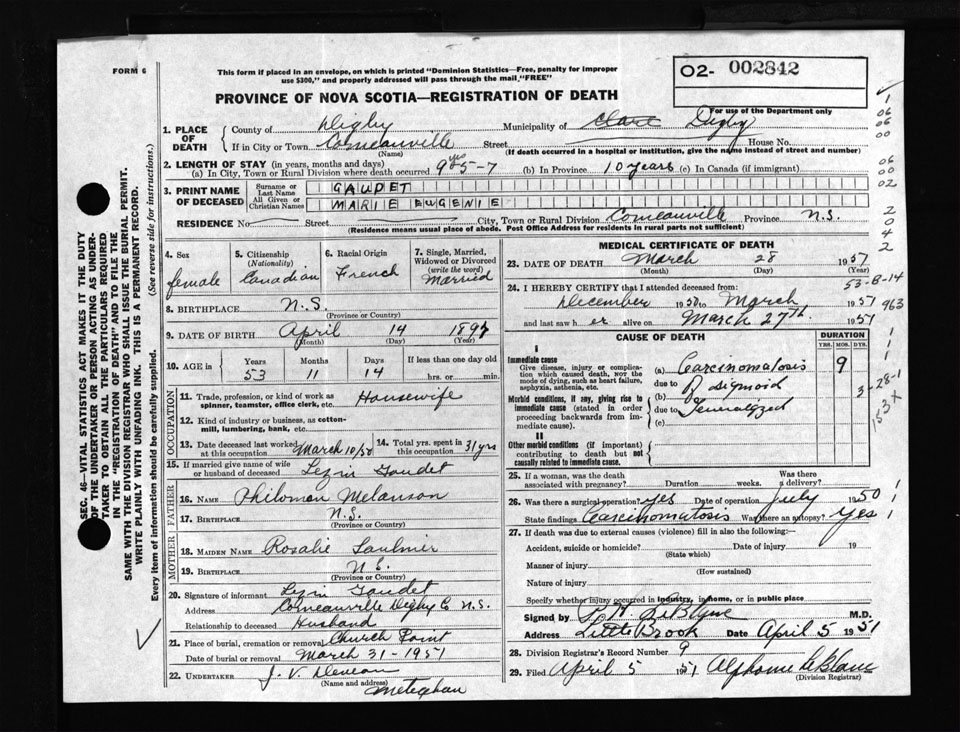 FORM 6
This form if placed in an envelope, on which is printed "Dominion Statistics—Free, penalty for improper
use $300," and properly addressed will pass through the mail, "FREE"
PROVINCE OF NOVA SCOTIA—REGISTRATION OF DEATH
02- 002842
For use of the Department only
1. PLACE OF DEATH
County of Digby Municipality of Clare Digby
If in City or Town Comeauville Street House No.
(Name) (If death occurred in a hospital or institution, give the name instead of street and number)
2. LENGTH OF STAY (in years, months and days)
(a) In City, Town or Rural Division where death occurred 9 yrs 5-7 (b) In Province 10 years (c) In Canada (if immigrant)
3. PRINT NAME OF DECEASED
Surname or Last Name GAUDET
All Given or Christian Names MARIE EUGENIE
RESIDENCE No. Street City, Town or Rural Division Comeauville Province N.S.
(Residence means usual place of abode. Post Office Address for residents in rural parts not sufficient)
4. Sex female
5. Citizenship (Nationality) Canadian
6. Racial Origin French
7. Single, Married, Widowed or Divorced (write the word) Married
8. BIRTHPLACE N.S.
(Province or Country)
9. DATE OF BIRTH April 14 1897
(Month) (Day) (Year)
10. AGE in Years Months Days If less than one day old
53 11 14 hrs. or min.
OCCUPATION
11. Trade, profession, or kind of work as spinner, teamster, office clerk, etc. Housewife
12. Kind of industry or business, as cotton-mill, lumbering, bank, etc.
13. Date deceased last worked at this occupation March 10/50
14. Total yrs. spent in this occupation 31 yrs
15. If married give name of wife or husband of deceased Lezin Gaudet
FATHER
16. NAME Philomon Melanson
17. BIRTHPLACE N.S.
(Province or Country)
MOTHER
18. MAIDEN NAME Rosalie Saulnier
19. BIRTHPLACE N.S.
(Province or Country)
20. Signature of informant Lezin Gaudet
Address Comeauville Digby Co N.S.
Relationship to deceased Husband
21. Place of burial, cremation or removal Church Point
Date of burial or removal March 31-1951
22. UNDERTAKER J. V. Deveau
(Name and address) Meteghan
MEDICAL CERTIFICATE OF DEATH
23. DATE OF DEATH March 28 1951
(Month) (Day) (Year)
53-B-14
24. I HEREBY CERTIFY that I attended deceased from:
December 1950 to March 1951
963
and last saw her alive on March 27th. 1951
CAUSE OF DEATH
DURATION
YRS. MOS. DYS.
I
Immediate cause
Give disease, injury or complication which caused death, not the mode of dying, such as heart failure, asphyxia, asthenia, etc.
(a) Carcinomatosis 9
due to
Morbid conditions, if any, giving rise to immediate cause (stated in order proceeding backwards from immediate cause).
(b) Sigmoid 3
due to Generalized
(c)
II
Other morbid conditions (if important) contributing to death but not causally related to immediate cause.
25. If a woman, was the death associated with pregnancy? Duration weeks. Was there a delivery?
26. Was there a surgical operation? yes Date of operation July 1950
State findings Carcinomatosis Was there an autopsy? yes
27. If death was due to external causes (violence) fill in also the following:
Accident, suicide or homicide? Date of injury 19
(State which)
Manner of injury
(How sustained)
Nature of injury
Specify whether injury occurred in industry, in home, or in public place
Signed by P. H. LeBlanc M.D.
Address Little Brook Date April 5 1951
28. Division Registrar's Record Number 9
29. Filed April 5 1951 Alphonse LeBlanc
(Division Registrar)
SEC. 46—VITAL STATISTICS ACT MAKES IT THE DUTY
OF THE UNDERTAKER OR PERSON ACTING AS UNDER-
TAKER TO OBTAIN ALL THE PARTICULARS REQUIRED
IN THE "REGISTRATION OF DEATH" AND TO FILE THE
SAME WITH THE DIVISION REGISTRAR WHO SHALL ISSUE THE BURIAL PERMIT.
WRITE PLAINLY WITH UNFADING INK. THIS IS A PERMANENT RECORD.
Every item of information should be carefully supplied. (See reverse side for instructions.)